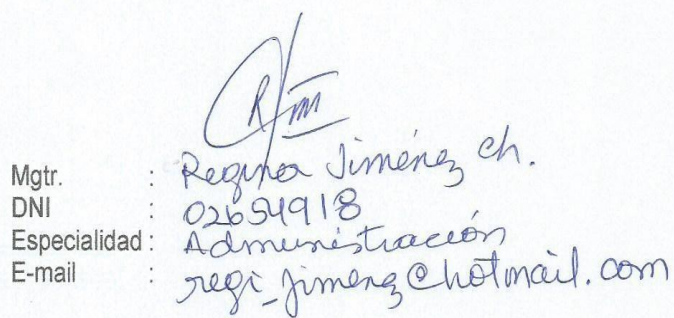 Mgtr. : Regina Jiménez Ch.
DNI : 02654918
Especialidad : Administración
E-mail : regi_jimenez@hotmail.com